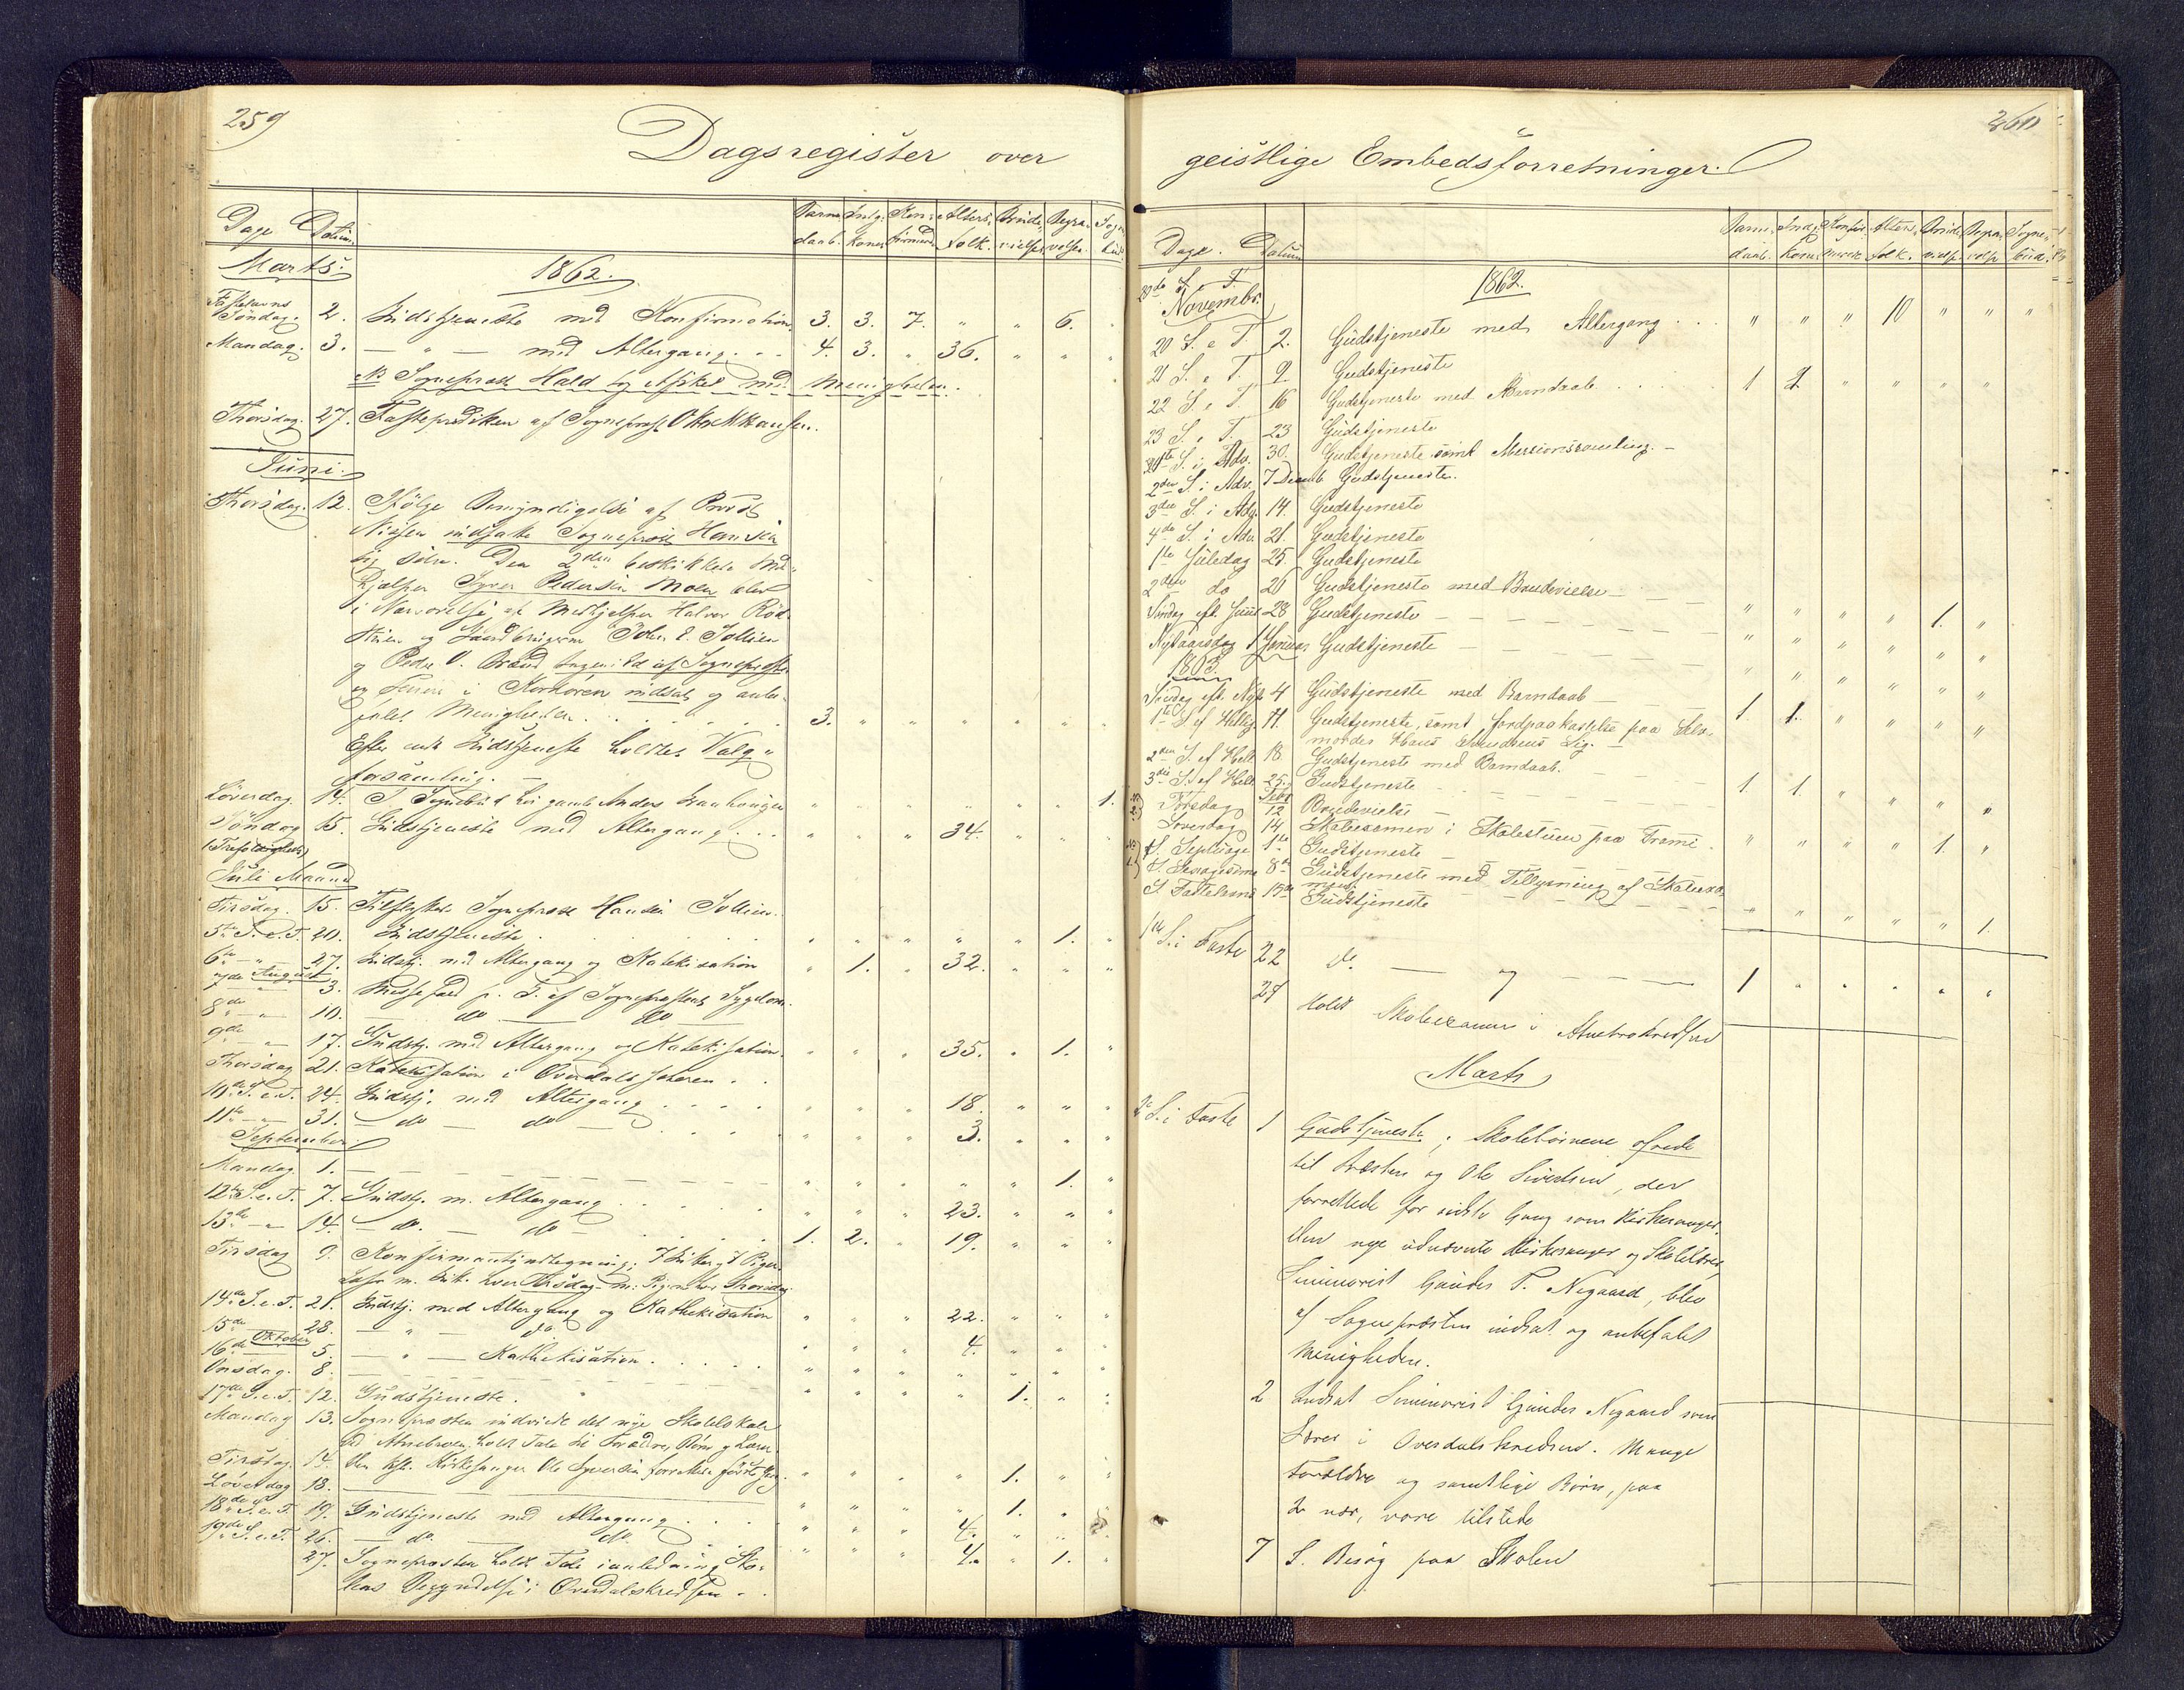 259
Dagsregister over
Dage Datum. Barne daab. Indg. Koner Konfirmerede Alters folk. Brude vielser Begra velser Sogne bud
Marts. 1862.
Fastelavns
Söndag. 2. Gudstjeneste med Konfirmation 3. 3. 7. " " 6.
Mandag. 3. — " — med Altergang. . . 4. 3. " 36. " " "
NB Sognepræst Hald tog Afsked med Menigheden.
Thorsdag. 27. Fasteprædiken af Sognepræst
Juni.
Thorsdag. 12. Ifölge Bemyndigelse af Provst
Nissen indsatte Sognepræst Hansen
sig selv. Den 2den beskikkede Med-
hjælper Syver Pedersen Moen blev
i Nærværelse af Medhjelper Halvor
og Gaardbrugerne John E. Jollien
og Peder O. Brænd tagen i Ed af Sognepræsten
og i Kordören indsat og anbe-
falet Menigheden. . . . 3. " " " " "
Efter endt Gudstjeneste holdtes Valg-
forsamling. —
Löverdag 14. I Sognebud hos gamle Anders " " " " " " 1.
Söndag 15. Gudstjeneste med Altergang . . . " " " 34. " "
(Trefoldigheds)
Juli Maaned
Tirsdag. 15. Tilflyttede Sognepræst Hansen Jollien.
5te S. e. T. 20. Gudstjeneste . . . " " " " " 1. "
6te — " — 27. Gudstj. med Altergang og Katekisation " 1. " 32. " " "
August
7de " 3. Messefald p. G. af Sognepræstens Sygdom.
8de — " — 10. — do — do
9de — " 17. Gudstj. med Altergang og Katekisation " " " 35. " 1. "
Thorsdag 21. Katekisation i Överdals
10de S. e. T. 24. Gudstj. med Altergang . . . " " " 18. " " "
11te — " 31. — do — do — . . . " " " 3. " " "
September
Mandag 1. — — — — " " " " " 1. "
12te S. e. T. 7. Gudstj. m. Altergang . . . " " " 23. " " "
13de — " 14. — do. — do — . . . 1. 2. " 19. " " "
Tirsdag 9. Konfirmantindtegning; 7 Gutter og 7 Piger
Læse m. Gut. hver Tirsdag — m. Pigerne hver Thorsdag
14de S. e. T. 21. Gudstj. med Altergang og Kathekisation " " " 22. " " "
15de 28. — " — do " " " 4. " " "
Oktober
16de 5. — " — Kathekisation . . . " " " " " " "
Onsdag. 8. " " " " 1. " "
17de S. e. T. 12. Gudstjeneste.
Mandag 13. Sognepræsten indviede det nye Skolelokale
ved Atnebroen. holdt Tale til Forældre, Börn og Lærer
Tirsdag. 14. Kirkesanger Ole Syversen forrettede " " " " 1. " "
Löverdag 18. — " " " " 1. " "
18de S. e. T. 19. Gudstjeneste med Altergang . . . " " " 4. " " "
19de S. e. T. 26. — do. — do. " " " 4. " 1. "
27. Sognepræsten holdt Tale i anledning Sko-
lens Begyndelse i Överdalskredsen . .
260
geistlige Embedsforretninger.
Dage. Datum Barne daab. Indg. Kone. Konfir merede Alters folk. Brude vielse Begra velse Sogne bud.
20de S. e. T.
Novembr. 1862.
20 S. e T. 2. Gudstjeneste med Altergang . . . " " " 10 " " "
21 S. e T. 9. Gudstjeneste
22 S. e T. 16 Gudstjeneste med Barndaab . . . 1 1 " " " "
23 S. e T. 23 Gudstjeneste
1te S. i Adv. 30. Gudstjeneste samt Missionssamling. —
2den S. i Adv. 7 Decemb Gudstjeneste.
3die S. i Adv. 14. Gudstjeneste
4de S. i Adv 21. Gudstjeneste
1te Juledag 25. Gudstjeneste
2den do 26 Gudstjeneste med Brudevielse — " " " " 1. "
Söndag eft. Juul 28 Gudstjeneste — " " " " " "
Nytaarsdag 1 Januar Gudstjeneste — " " " " " "
1863.
Söndag eft. Nyt. 4 Gudstjeneste med Barndaab — 1 1. " " " "
1te S. ef Hellig. 11 Gudstjeneste, samt Jordpaakastelse paa Selv-
morder Hans Lig. —
2den S. ef Hell. 18. Gudstjeneste med Barndaab. — 1 1. " " " "
3die S. ef Hell. 25. Gudstjeneste —
Torsdag Febr 12 Brudevielse — " " " " 1. "
Loverdag 14 Skoleexamen i Skolestuen paa Trönæs .
S. Septuage 1te Gudstjeneste —
S. Sexagesima 8de Gudstjeneste med Tillysning af Skoleexa-
men.
S. Fastelavns 15de Gudstjeneste — " " " " " 1.
1te S. i Faste 22 do. — " — — 1 " " " " "
27 Holdt Skoleexamen i Atnebrokredsen
Marts
2den S. i Faste 1 Gudstjeneste; Skolebörnene ofrede
til Præsten og Ole Sivertsen, der
forrettede for sidste Gang som Kirkesanger.
Den nye udnævnte Kirkesanger og Skolelærer,
Seminarist Gunder P. Nygaard, blev
af Sognepræsten indsat og anbefalet
Menigheden.
2 Indsat Seminarist Gunder Nygaard som
Lærer i Överdalskredsen. Mange
Forældre og samtlige Börn, paa
2 nær, vare tilstede
7 S. Besög paa Skolen